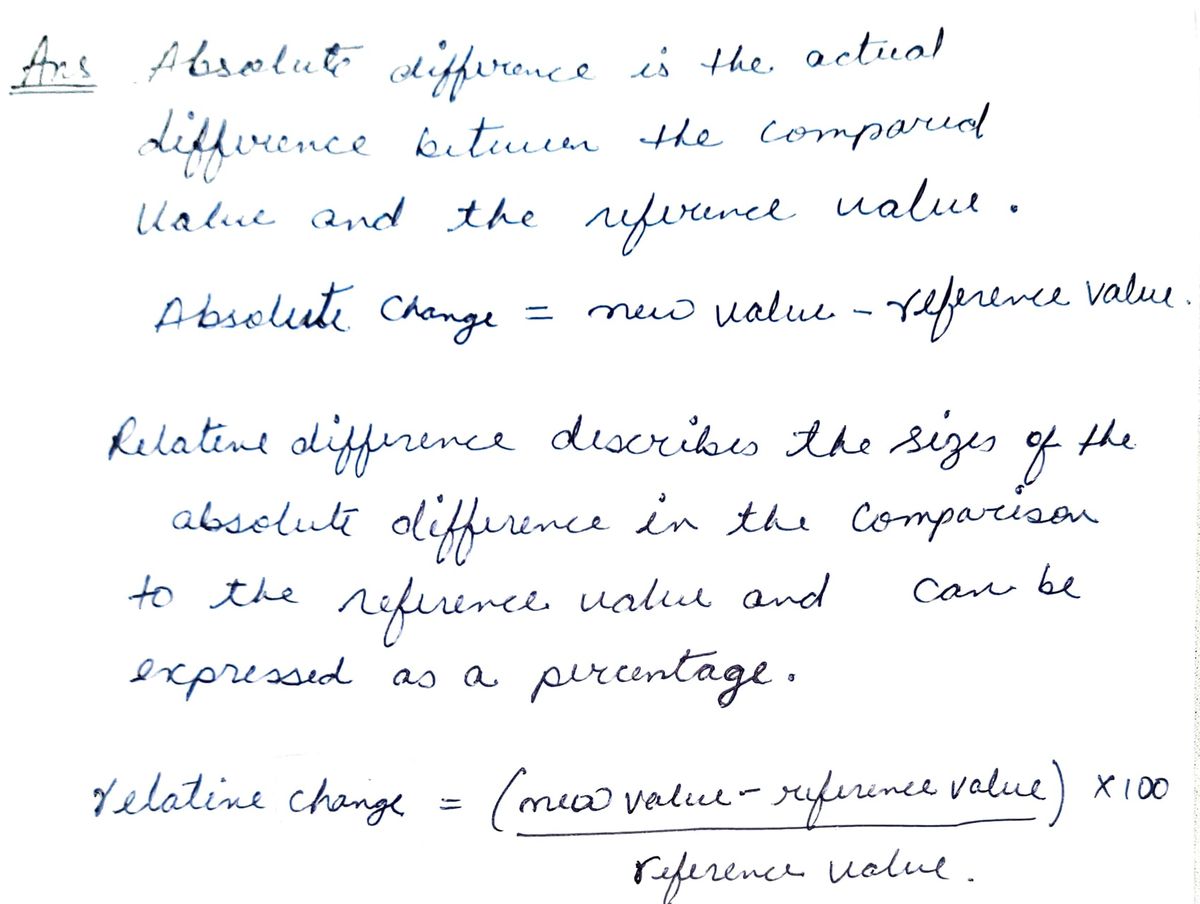 Ans Absolute difference is the actual
difference between the compared
Value and the reference value.
Absolute Change = new value - reference value.
Relative difference describes the sizes of the
absolute difference in the comparison
to the reference value and can be
expressed as a percentage.
relative change = (new value - reference value) × 100
reference value.